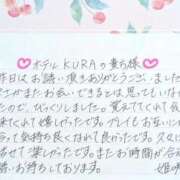 ホテルKURAの貴ち様
昨日はお誘い頂きありがとうございました
またお会いできるとは思っていな
ったので、びっくりしました。覚えててくれて
来てくれて嬉しかったです。プレイもお互い
って気持ち良くなれて良かったです。久し
させて楽しかったです。またお時間が合
お待ちしております。